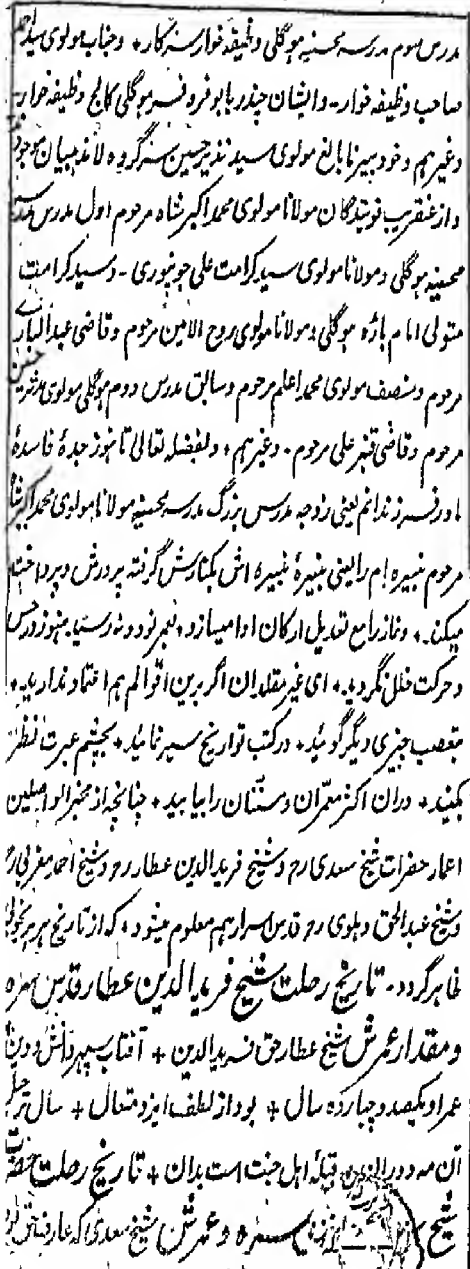 مدرس سوم مدرسہ محسنیہ ہوگلی وظیفہ خوار سرکار + وجناب مولوی سید احمد
صاحب وظیفہ خوار - وایشان چندر بابو فروفسر ہوگلی کالج وظیفہ خوار -
وغیرہم وخود پیر نابالغ مولوی سید نذیر حسین سرگروہ لا مذہبیان موجود
واز عنقریب فوتیدگان مولانا مولوی محمد اکبر شاہ مرحوم اول مدرس مدرسہ
محسنیہ ہوگلی ومولانا مولوی سید کرامت علی جونپوری - وسید کرامت
متولی امام باڑہ ہوگلی ومولانا مولوی روح الامین مرحوم وقاضی عبدالباری
مرحوم ومنصف مولوی محمد اعلم مرحوم وسابق مدرس دوم ہوگلی مولوی
مرحوم وقاضی قنبر علی مرحوم - وغیرہم + وبفضلہ تعالی تا ہنوز جدۂ فاسدۂ
مادر فرزندانم یعنی زوجہ مدرس بزرگ مدرسہ محسنیہ مولانا مولوی محمد اکبر شاہ
مرحوم نبیرہ ام را یعنی نبیرۂ نبیرہ اش بکنارش گرفتہ پرورش وپرداخت
میکند + ونماز را مع تعدیل ارکان ادا میسازد + بعمر نود ونہ رسید ہنوز در حس
وحرکت خلل نگردید + ای غیر مقلدان اگر برین اقوالم ہم اعتماد ندارید +
بتعصب چیزی دیگر گوئید + در کتب تواریخ سیر نمائید + بچشم عبرت نظر
بکنید + دران اکثر معمران وسنان را بیابید + چنانچہ از مخبر الواصلین
اعمار حضرات شیخ سعدی رح وشیخ فرید الدین عطار رح وشیخ احمد مغربی رح
وشیخ عبدالحق دہلوی رح قدس اسرارہم معلوم میشود + کہ از تاریخ ہر یک
ظاہر گردد - تاریخ رحلت شیخ فرید الدین عطار قدس سرہ
ومقدار عمرش شیخ عطار حق فرید الدین + آفتاب سپہر دانش ودین
عمر او یکصد وچہاردہ سال + بود از لطف ایزد متعال + سال ترحیل
آن مہ دور قبلۂ اہل جنت است بدان + تاریخ رحلت حضرت
شیخ سرہ وعمرش شیخ سعدی کہ عارف